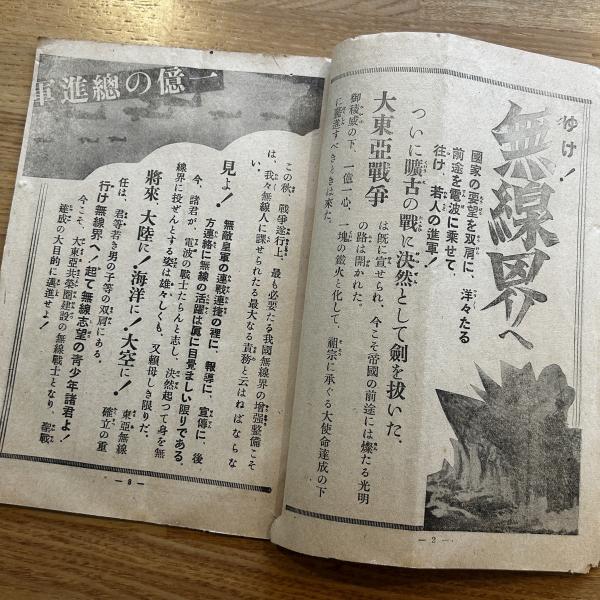 ゆけ！
無線界へ
國家の要望を双肩に、洋々たる
前途を電波に乘せて、
往け、若人の進軍！
ついに曠古の戰に決然として劍を拔いた。
大東亞戰爭
は既に宣せられ、今こそ帝國の前途には燦たる光明
の路は開かれた。
御稜威の下、一億一心、一塊の鐵火と化して、祖宗に承ぐる大使命達成の下
に驀進すべきときは來た。
— 2 —
一億の總進軍
この秋、戰爭遂行上、最も必要たる我國無線界の增强整備こそ
は、我々無線人に課せられたる最大なる責務と云はねばならな
い。
見よ！
無敵皇軍の連戰連捷の裡に、報導に、宣傳に、後
方連絡に無線の活躍は眞に目覺ましい限りである。
今、諸君が、電波の戰士たらんと志し、決然起つて身を無
線界に投ぜんとする姿は雄々しくも、又賴母しき限りだ。
將來、大陸に！海洋に！大空に！
東亞無線
確立の重
任は、君等若き男の子等の双肩にある。
行け無線界へ！起て無線志望の青少年諸君よ！
今こそ、大東亞共榮圈建設の無線戰士となり、聖戰
達成の大目的に邁進せよ！